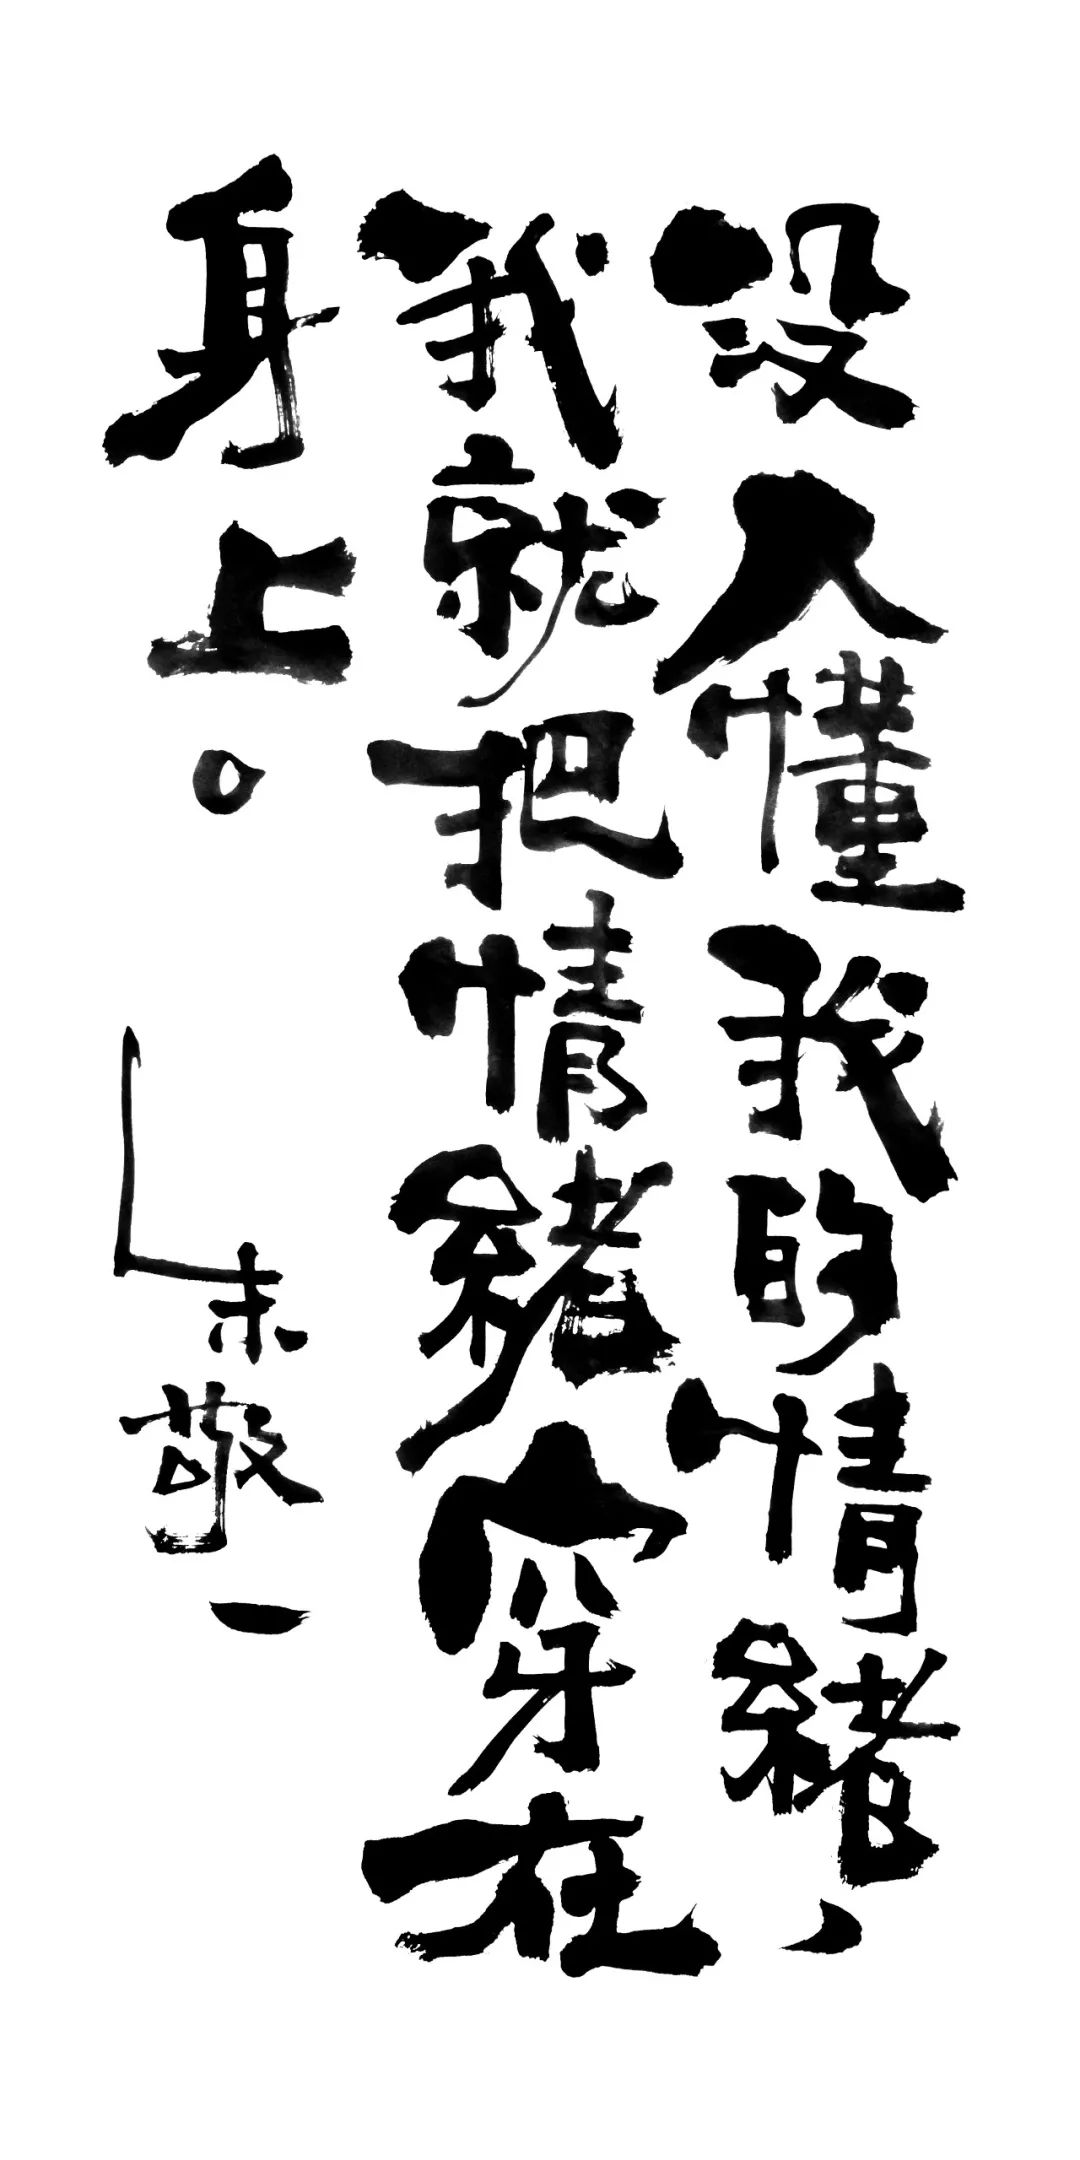 没人懂我的情緒，
我就把情緒穿在
身上。
朱敬一